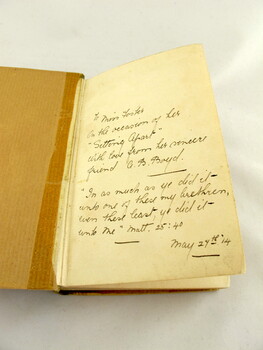 To Miss Foster
On the occasion of her
"Setting Apart"
with love from her sincere
friend C. B. Boyd.
"In as much as ye did it
unto one of these my brethren,
even these least ye did it
unto Me" Matt. 25:40
May 27th '14